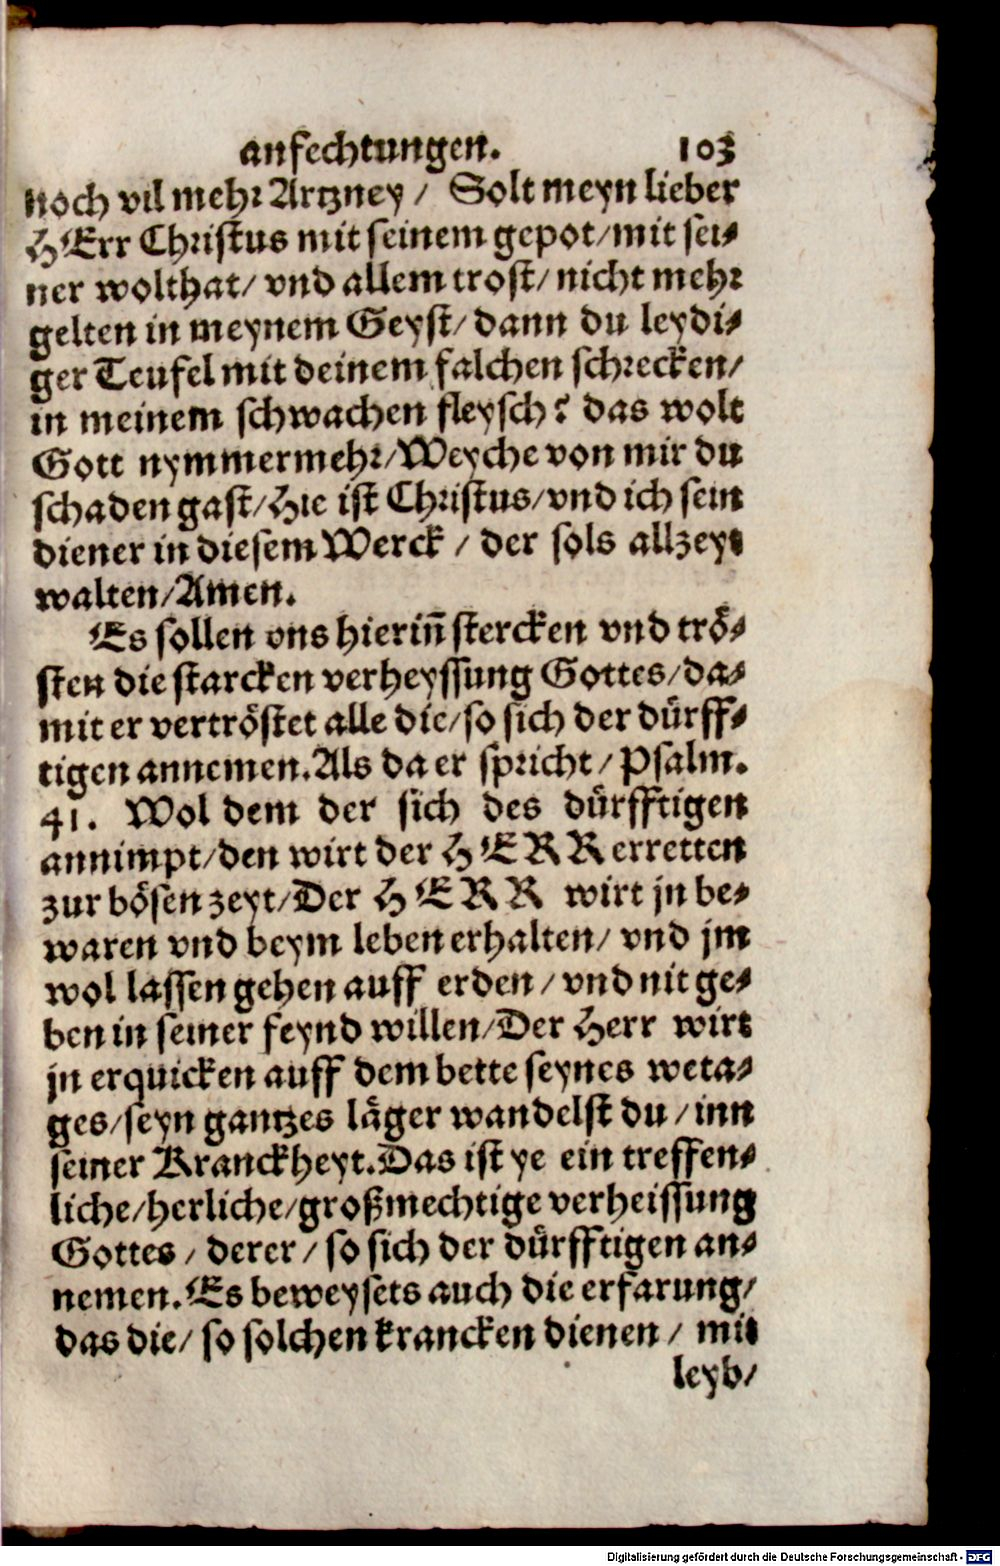 anfechtungen. 103
noch vil mehr Artzney / Solt meyn lieber
HErr Christus mit seinem gepot/mit sei⸗
ner wolthat/ vnd allem trost/ nicht mehr
gelten in meynem Geyst/ dann du leydi⸗
ger Teufel mit deinem falchen schrecken/
in meinem schwachen fleysch? das wolt
Gott nymmermehr/Weyche von mir du
schaden gast/Hie ist Christus/vnd ich sein
diener in diesem Werck / der sols allzeyt
walten/Amen.
Es sollen vns hierin̄ stercken vnd trö⸗
sten die starcken verheyssung Gottes/da⸗
mit er vertröstet alle die/so sich der dürff⸗
tigen annemen.Als da er spricht/ Psalm.
41. Wol dem der sich des dürfftigen
annimpt/den wirt der HERR erretten
zur bösen zeyt/Der HERR wirt jn be⸗
waren vnd beym leben erhalten/ vnd jm
wol lassen gehen auff erden / vnd nit ge⸗
ben in seiner feynd willen/Der Herr wirt
jn erquicken auff dem bette seynes weta⸗
ges/seyn gantzes läger wandelst du / inn
seiner Kranckheyt.Das ist ye ein treffen⸗
liche/herliche/großmechtige verheissung
Gottes / derer / so sich der dürfftigen an⸗
nemen.Es beweysets auch die erfarung/
das die/ so solchen krancken dienen / mit
leyb/
Digitalisierung gefördert durch die Deutsche Forschungsgemeinschaft - DFG